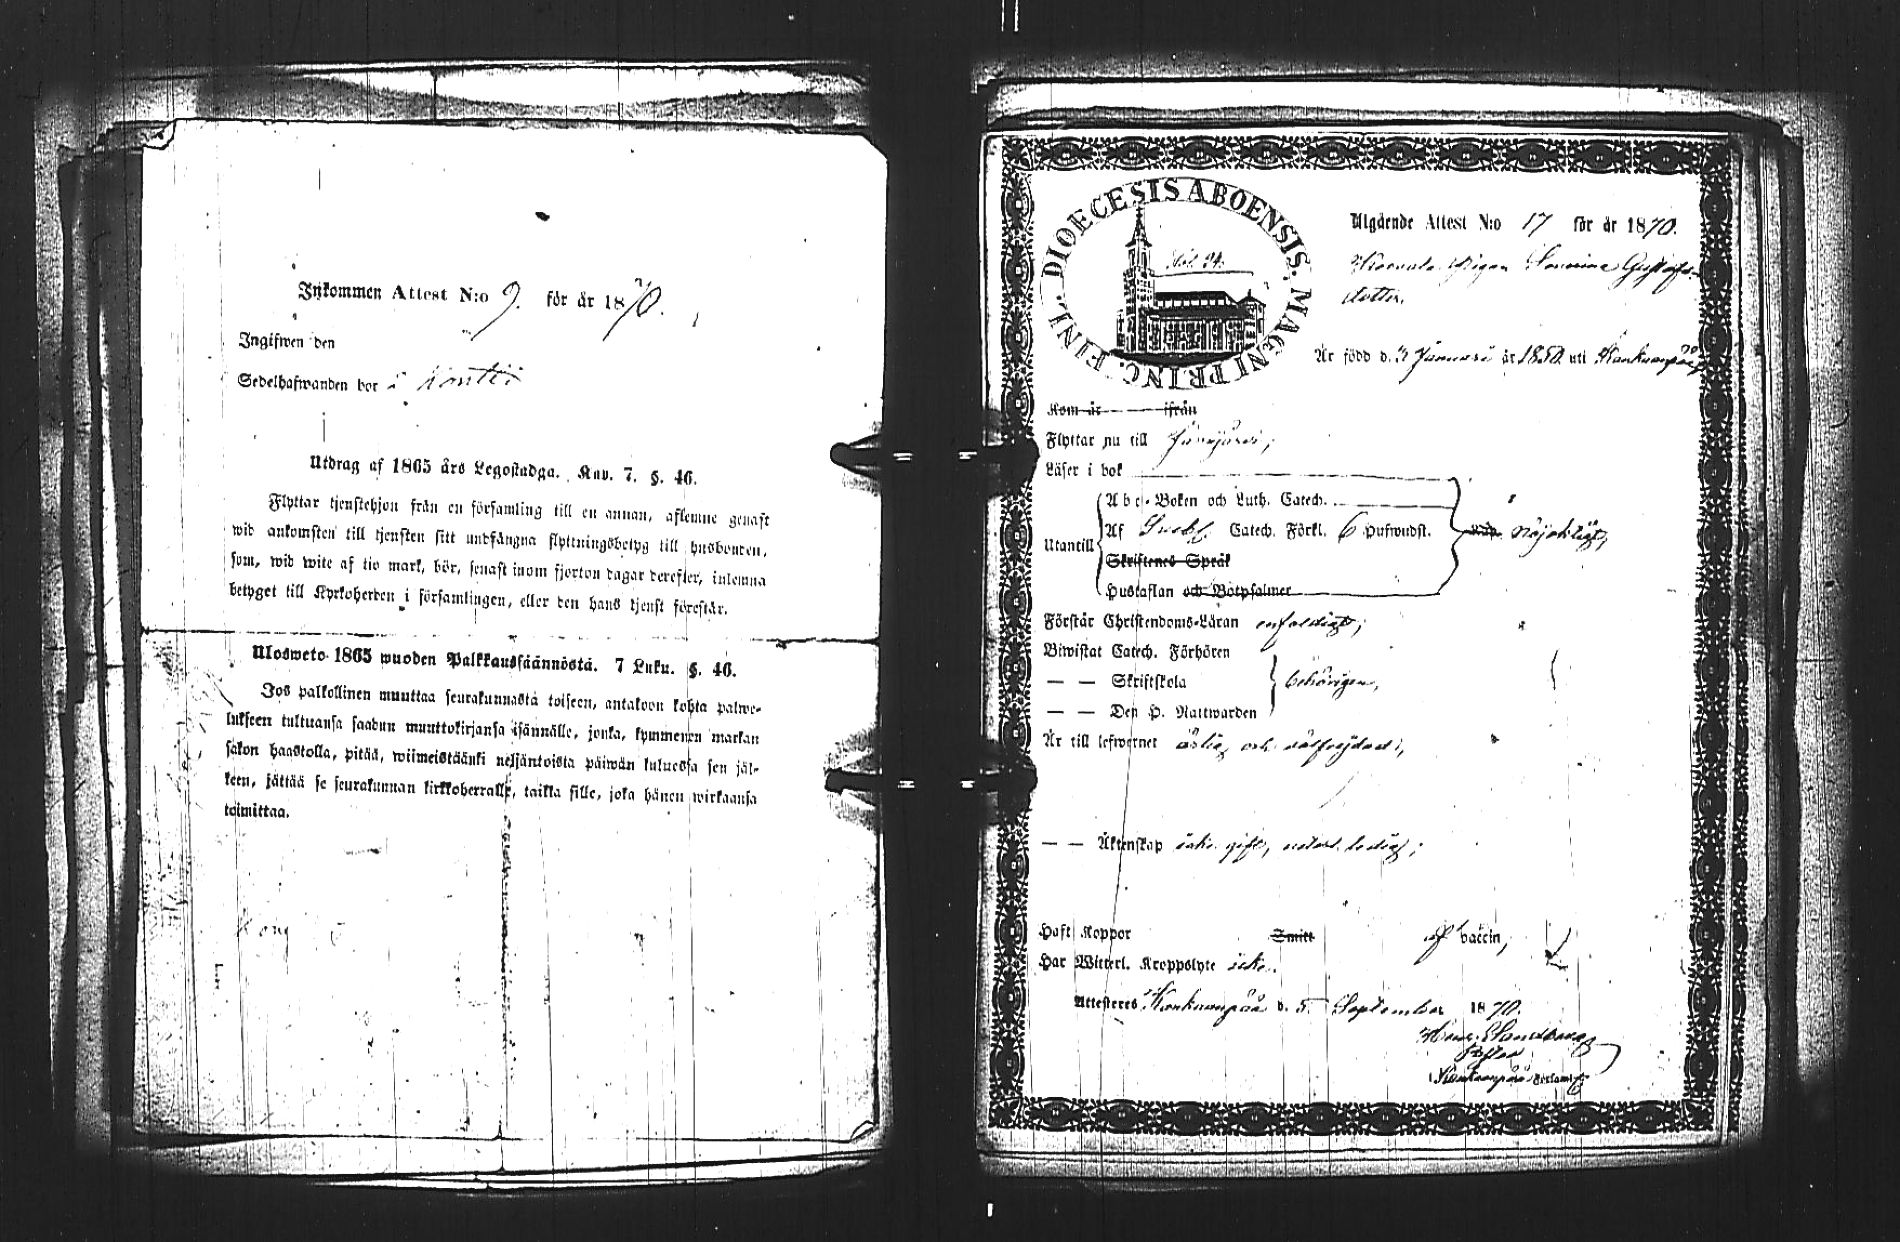 Inkommen Attest N:o 9. för år 1870.
Ingifwen den
Sedelhafwanden bor i Kontti
Utdrag af 1865 års Legostadga. Kap. 7. §. 46.
Flyttar tjenstehjon från en församling till en annan, aflemne genast
wid ankomsten till tjensten sitt undfångna flyttningsbetyg till husbonden,
som, wid wite af tio mark, bör, senast inom fjorton dagar derefter, inlemna
betyget till Kyrkoherden i församlingen, eller den hans tjenst förestår.
Ulosweto 1865 wuoden Palkkaussäännöstä. 7 Luku. §. 46.
Jos palkollinen muuttaa seurakunnasta toiseen, antakoon kohta palwe-
lukseen tultuansa saadun muuttokirjansa isännälle, jonka, kymmenen markan
sakon haastolla, pitää, wiimeistäänki neljäntoista päiwän kuluessa sen jäl-
keen, jättää se seurakunnan kirkkoherralle, taikka sille, joka hänen wirkaansa
toimittaa.
DIOECESIS ABOENSIS. MAGNI PRINC. FINL.
Fol. 94.
Utgående Attest N:o 17 för år 1870.
Pigan Gustafs-
dotter,
Är född d. 3 Januari år 1850 uti Kankaanpää,
Kom år ifrån
Flyttar nu till Jämijärvi,
Läser i bok
Abc-Boken och Luth. Catech.
Utantill Af Svebel. Catech. Förkl. 6 Hufwudst. nöjaktigt,
Skriftenes Språk
Hustaflan och Botpsalmer
Förstår Christendoms-Läran enfaldigt,
Biwistat Catech. Förhören
— — Skriftskola behörigen,
— — Den H. Nattwarden
Är till lefwernet ärlig och välfrejdad,
— — Äktenskap icke gift, ledig;
Haft Koppor Smitt af vaccin,
Har Witterl. Kroppslyte icke.
Attesteres Kankaanpää d. 5 September 1870.
Sandberg
Pastor
i Kankaanpää Församl.